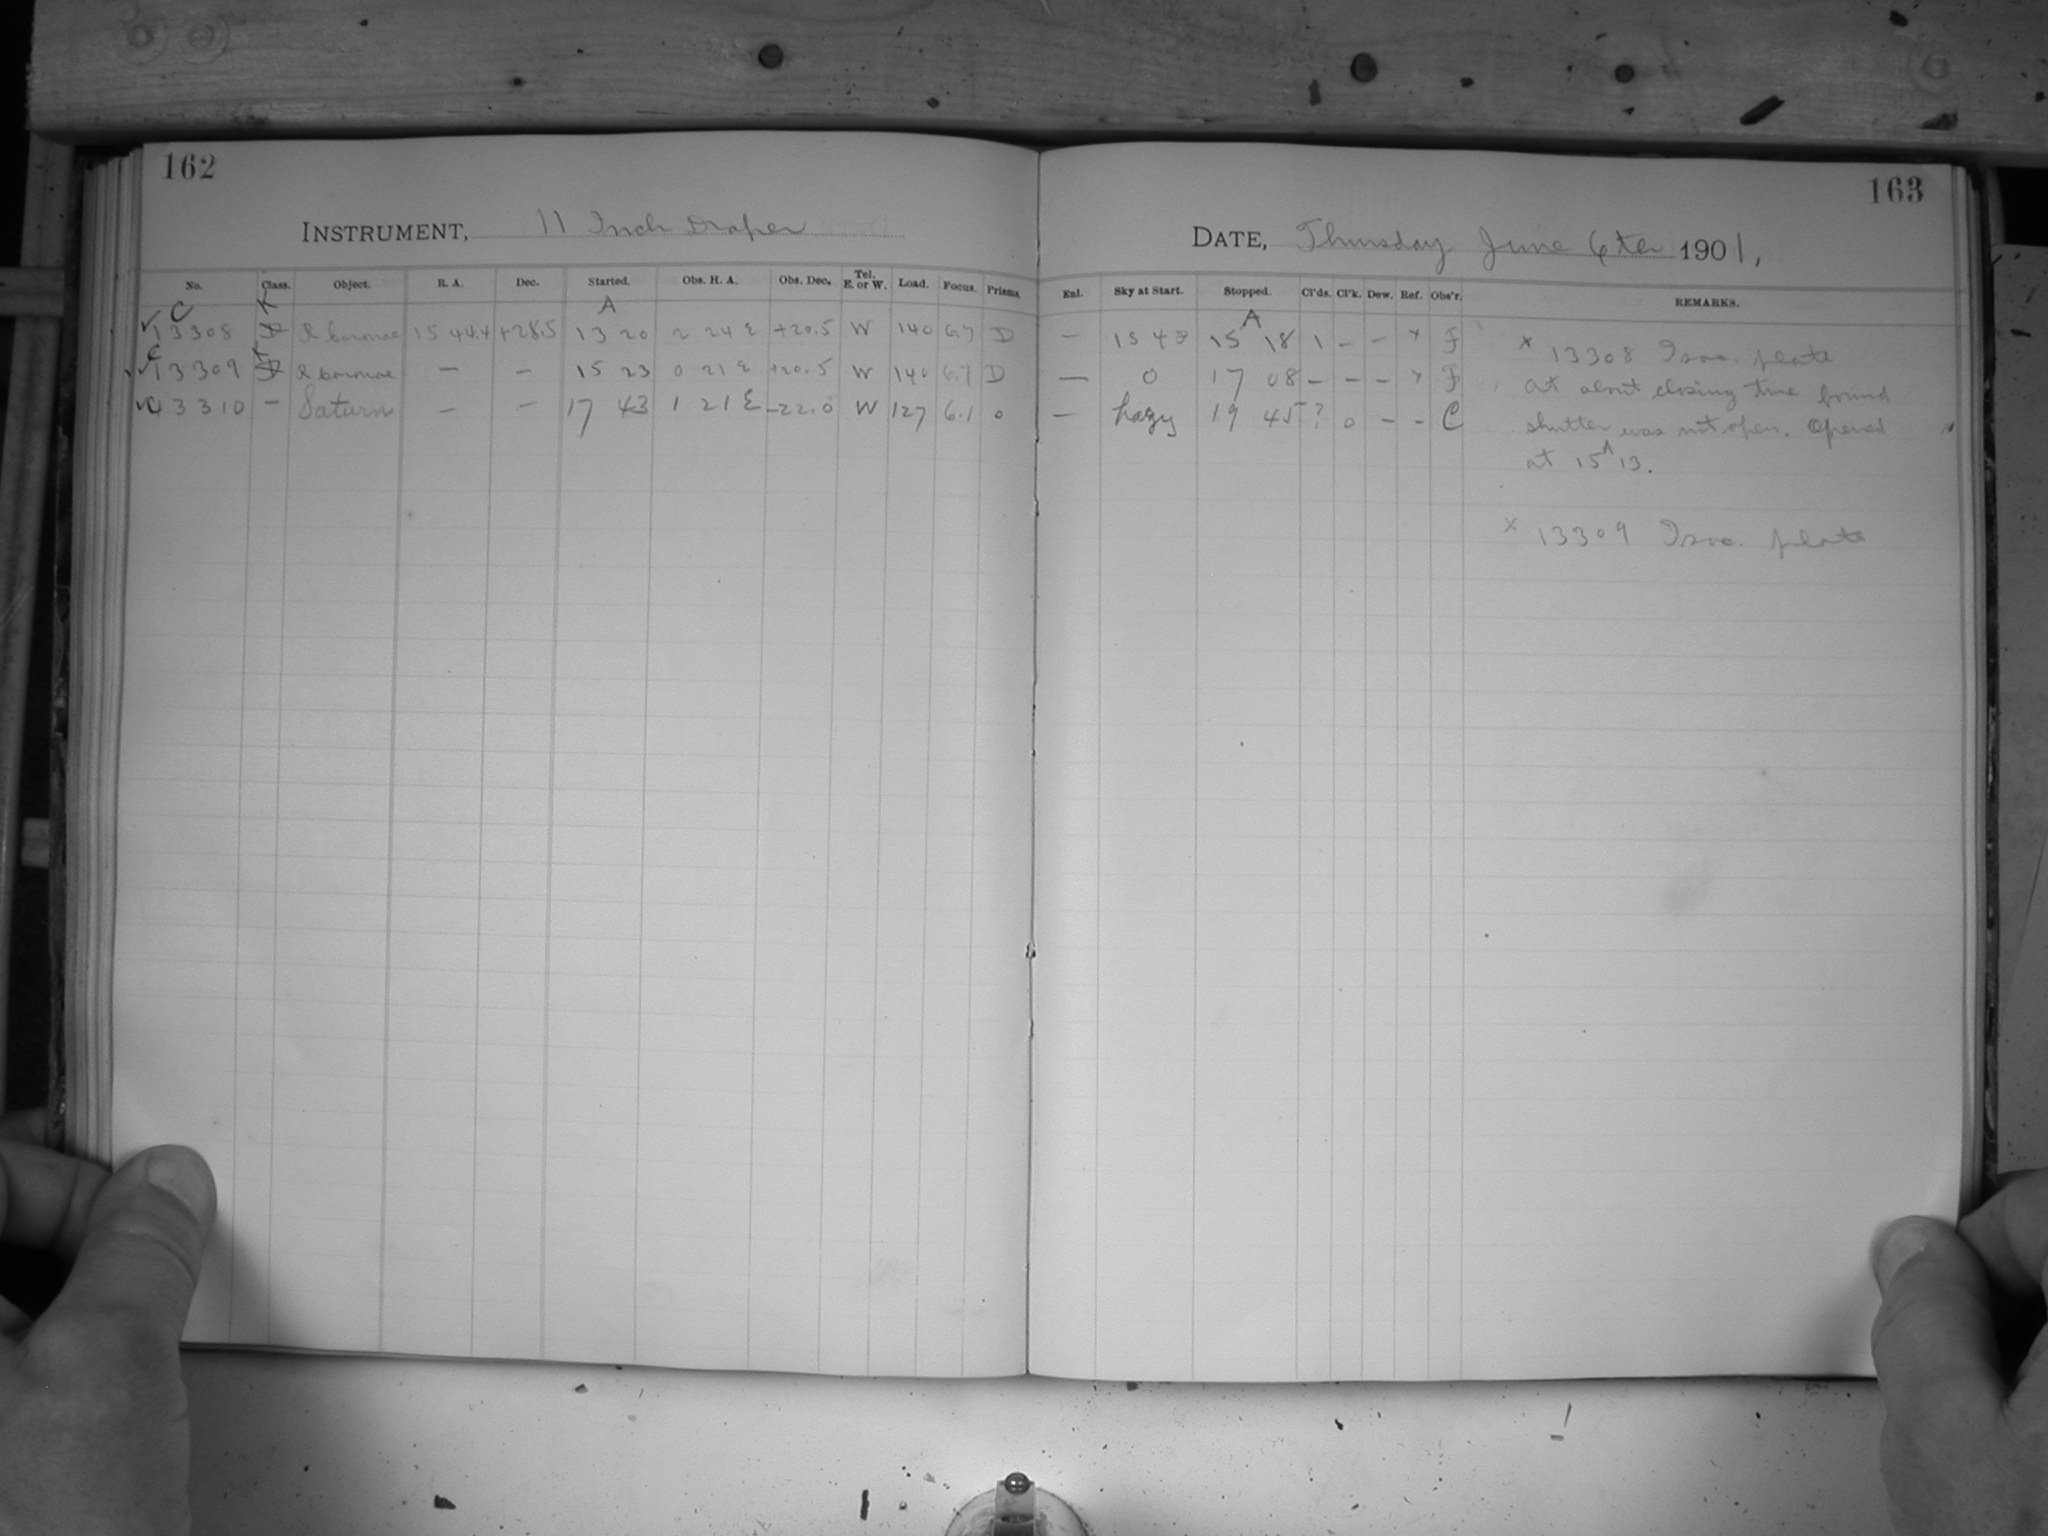 162
INSTRUMENT, 11 Inch Draper
No. Class. Object. R. A. Dec. Started. Obs. H. A. Obs. Dec. Tel. E. or W. Load. Focus. Prisms.
C A
13308 R Coronae 15 44.4 +28.5 13 20 2 24 E +20.5 W 140 6.7 D
13309 R Coronae — — 15 23 0 21 E +20.5 W 140 6.7 D
13310 — Saturn — — 17 43 1 21 E -22.0 W 127 6.1 0
163
DATE, Thursday June 6 1901,
Enl. Sky at Start. Stopped. Cl'ds. Cl'k. Dew. Ref. Obs'r. REMARKS.
A
— 15 18 1 — — x F
— 0 17 08 — — — x F
— hazy 19 45 ? 0 — — C
x 13308 Isoc. plate
at about closing time found
shutter was not open. Opened
at 15 A 13.
x 13309 Isoc. plate